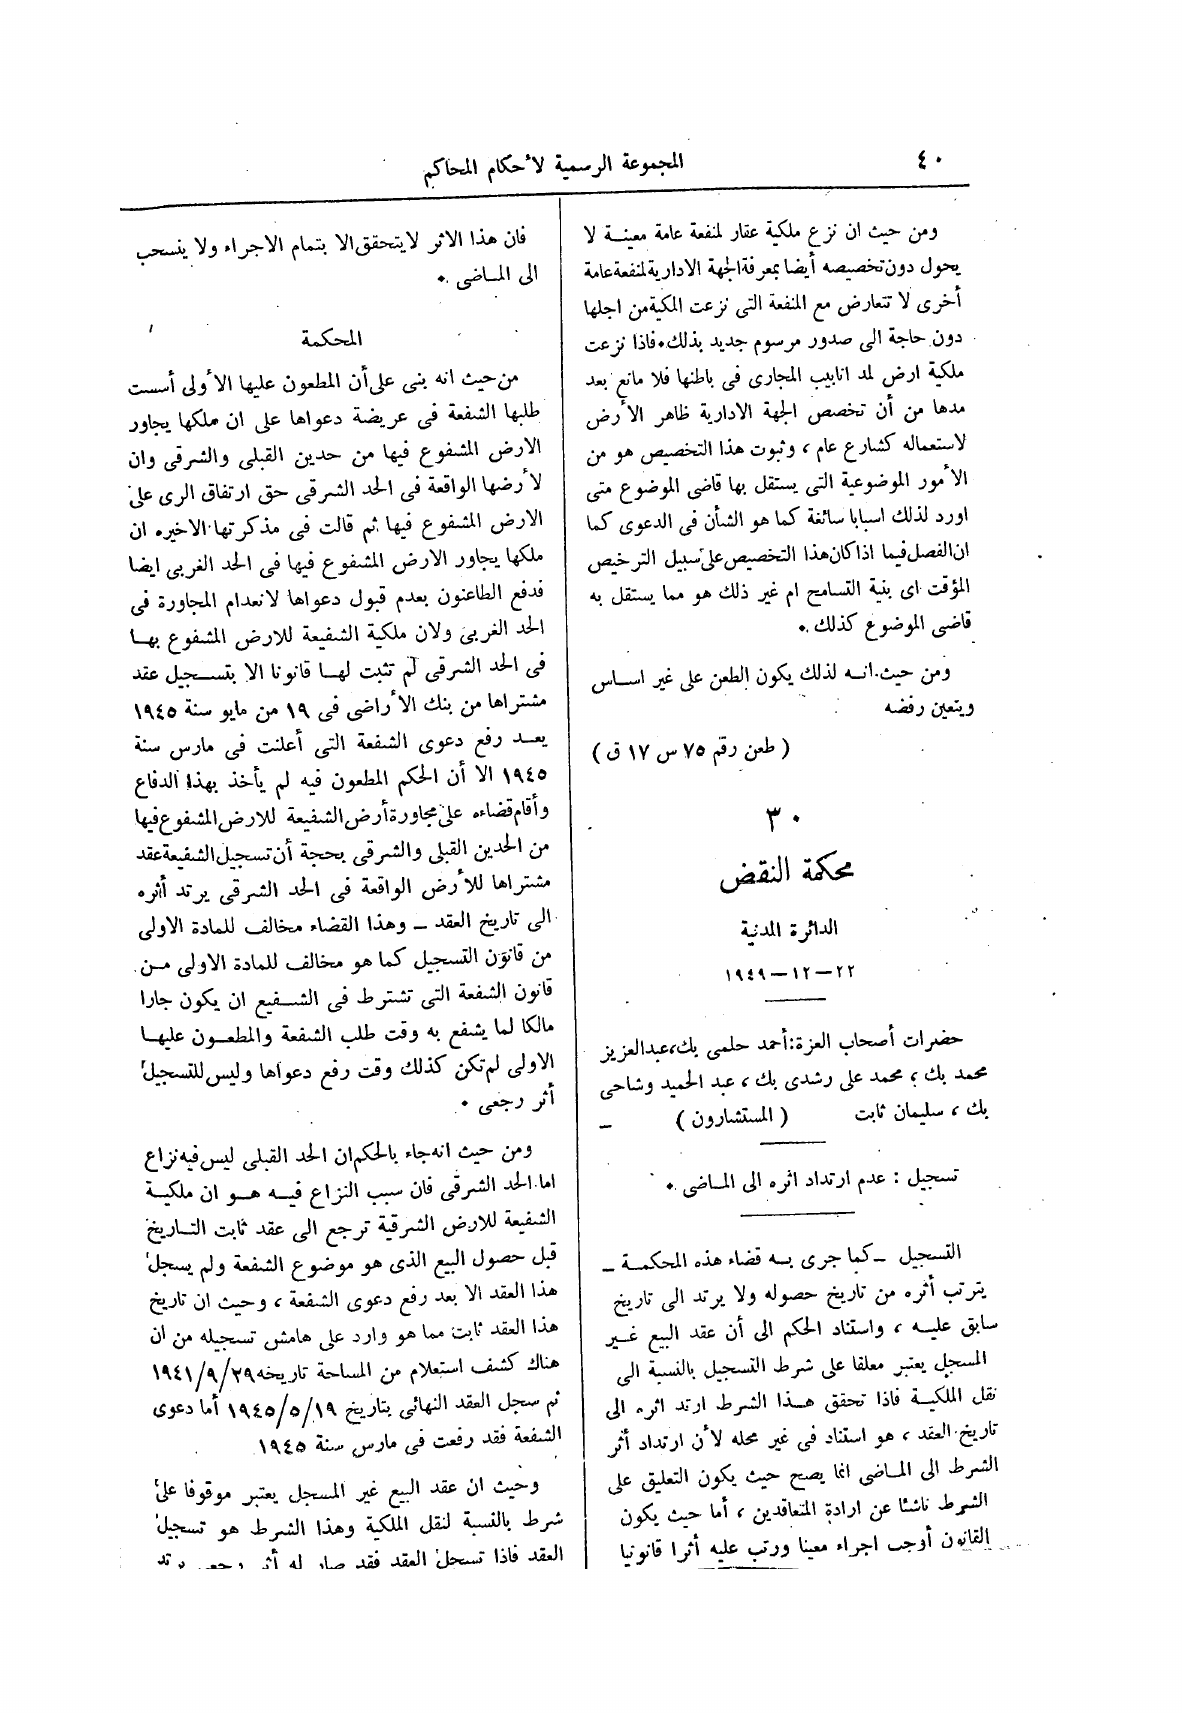 ٤٠
المجموعة الرسمية لأحكام المحاكم
ومن حيث ان نزع ملكية عقار لمنفعة عامة معينة لا
يحول دون تخصيصه أيضا بمعرفة الجهة الادارية لمنفعة عامة
أخرى لا تتعارض مع المنفعة التى نزعت المكية من اجلها
دون حاجة الى صدور مرسوم جديد بذلك . فاذا نزعت
ملكية ارض لمد انابيب المجارى فى باطنها فلا مانع بعد
مدها من أن تخصص الجهة الادارية ظاهر الأرض
لاستعماله كشارع عام ، وثبوت هذا التخصيص هو من
الأمور الموضوعية التى يستقل بها قاضى الموضوع متى
اورد لذلك اسبابا سائغة كما هو الشأن فى الدعوى كما
ان الفصل فيما اذا كان هذا التخصيص على سبيل الترخيص
المؤقت اى بنية التسامح ام غير ذلك هو مما يستقل به
قاضى الموضوع كذلك .
ومن حيث انه لذلك يكون الطعن على غير اساس
ويتعين رفضه
( طعن رقم ٧٥ س ١٧ ق )
٣٠
محكمة النقض
الدائرة المدنية
٢٢ – ١٢ – ١٩٤٩
حضرات أصحاب العزة : أحمد حلمى بك ، عبد العزيز
محمد بك ، محمد على رشدى بك ، عبد الحميد وشاحى
بك ، سليمان ثابت ( المستشارون ) –
تسجيل : عدم ارتداد اثره الى الماضى .
التسجيل – كما جرى به قضاء هذه المحكمة –
يترتب أثره من تاريخ حصوله ولا يرتد الى تاريخ
سابق عليه ، واستناد الحكم الى أن عقد البيع غير
المسجل يعتبر معلقا على شرط التسجيل بالنسبة الى
نقل الملكية فاذا تحقق هذا الشرط ارتد اثره الى
تاريخ العقد ، هو استناد فى غير محله لأن ارتداد أثر
الشرط الى الماضى انما يصح حيث يكون التعليق على
الشرط ناشئا عن ارادة المتعاقدين ، أما حيث يكون
القانون أوجب اجراء معينا ورتب عليه أثرا قانونيا
فان هذا الاثر لا يتحقق الا بتمام الاجراء ولا ينسحب
الى الماضى .
المحكمة
من حيث انه بنى على أن المطعون عليها الأولى أسست
طلبها الشفعة فى عريضة دعواها على ان ملكها يجاور
الارض المشفوع فيها من حدين القبلى والشرقى وان
لأرضها الواقعة فى الحد الشرقى حق ارتفاق الرى على
الارض المشفوع فيها ثم قالت فى مذكرتها الاخيره ان
ملكها يجاور الارض المشفوع فيها فى الحد الغربى ايضا
فدفع الطاعنون بعدم قبول دعواها لانعدام المجاورة فى
الحد الغربى ولان ملكية الشفيعة للارض المشفوع بها
فى الحد الشرقى لم تثبت لها قانونا الا بتسجيل عقد
مشتراها من بنك الأراضى فى ١٩ من مايو سنة ١٩٤٥
بعد رفع دعوى الشفعة التى أعلنت فى مارس سنة
١٩٤٥ الا أن الحكم المطعون فيه لم يأخذ بهذا الدفاع
وأقام قضاءه على مجاورة أرض الشفيعة للارض المشفوع فيها
من الحدين القبلى والشرقى بحجة أن تسجيل الشفيعة عقد
مشتراها للأرض الواقعة فى الحد الشرقى يرتد أثره
الى تاريخ العقد – وهذا القضاء مخالف للمادة الاولى
من قانون التسجيل كما هو مخالف للمادة الاولى من
قانون الشفعة التى تشترط فى الشفيع ان يكون جارا
مالكا لما يشفع به وقت طلب الشفعة والمطعون عليها
الاولى لم تكن كذلك وقت رفع دعواها وليس للتسجيل
أثر رجعى .
ومن حيث انه جاء بالحكم ان الحد القبلى ليس فيه نزاع
اما الحد الشرقى فان سبب النزاع فيه هو ان ملكية
الشفيعة للارض الشرقية ترجع الى عقد ثابت التاريخ
قبل حصول البيع الذى هو موضوع الشفعة ولم يسجل
هذا العقد الا بعد رفع دعوى الشفعة ، وحيث ان تاريخ
هذا العقد ثابت مما هو وارد على هامش تسجيله من ان
هناك كشف استعلام من المساحة تاريخه ١٩٤١/٩/٢٩
ثم سجل العقد النهائى بتاريخ ١٩٤٥/٥/١٩ أما دعوى
الشفعة فقد رفعت فى مارس سنة ١٩٤٥
وحيث ان عقد البيع غير المسجل يعتبر موقوفا على
شرط بالنسبة لنقل الملكية وهذا الشرط هو تسجيل
العقد فاذا تسجل العقد فقد صار له أثر رجعى يرتد